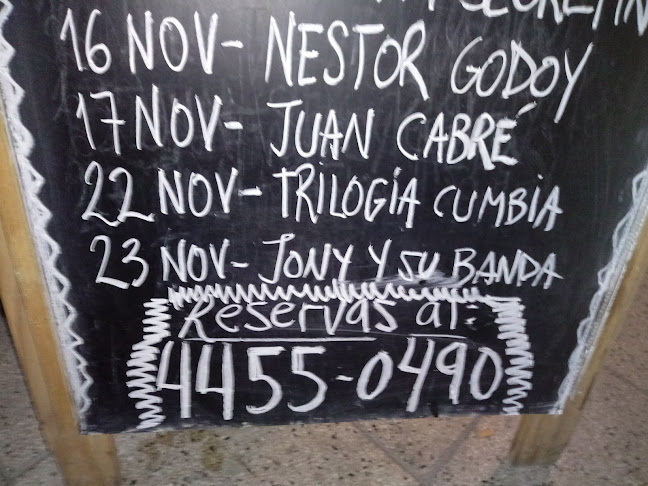 16 NOV- NESTOR GODOY
17 NOV- JUAN CABRÉ
22 NOV- TRILOGIA CUMBIA
23 NOV- JONY Y SU BANDA
Reservas al:
4455-0490